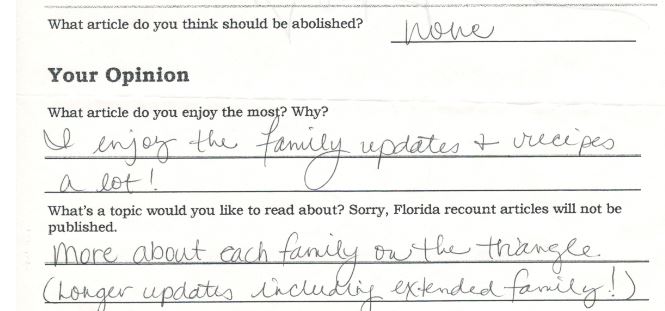 What article do you think should be abolished? none
Your Opinion
What article do you enjoy the most? Why?
I enjoy the family updates + recipes
a lot!
What's a topic would you like to read about? Sorry, Florida recount articles will not be
published.
More about each family on the triangle.
(Longer updates including extended family!)